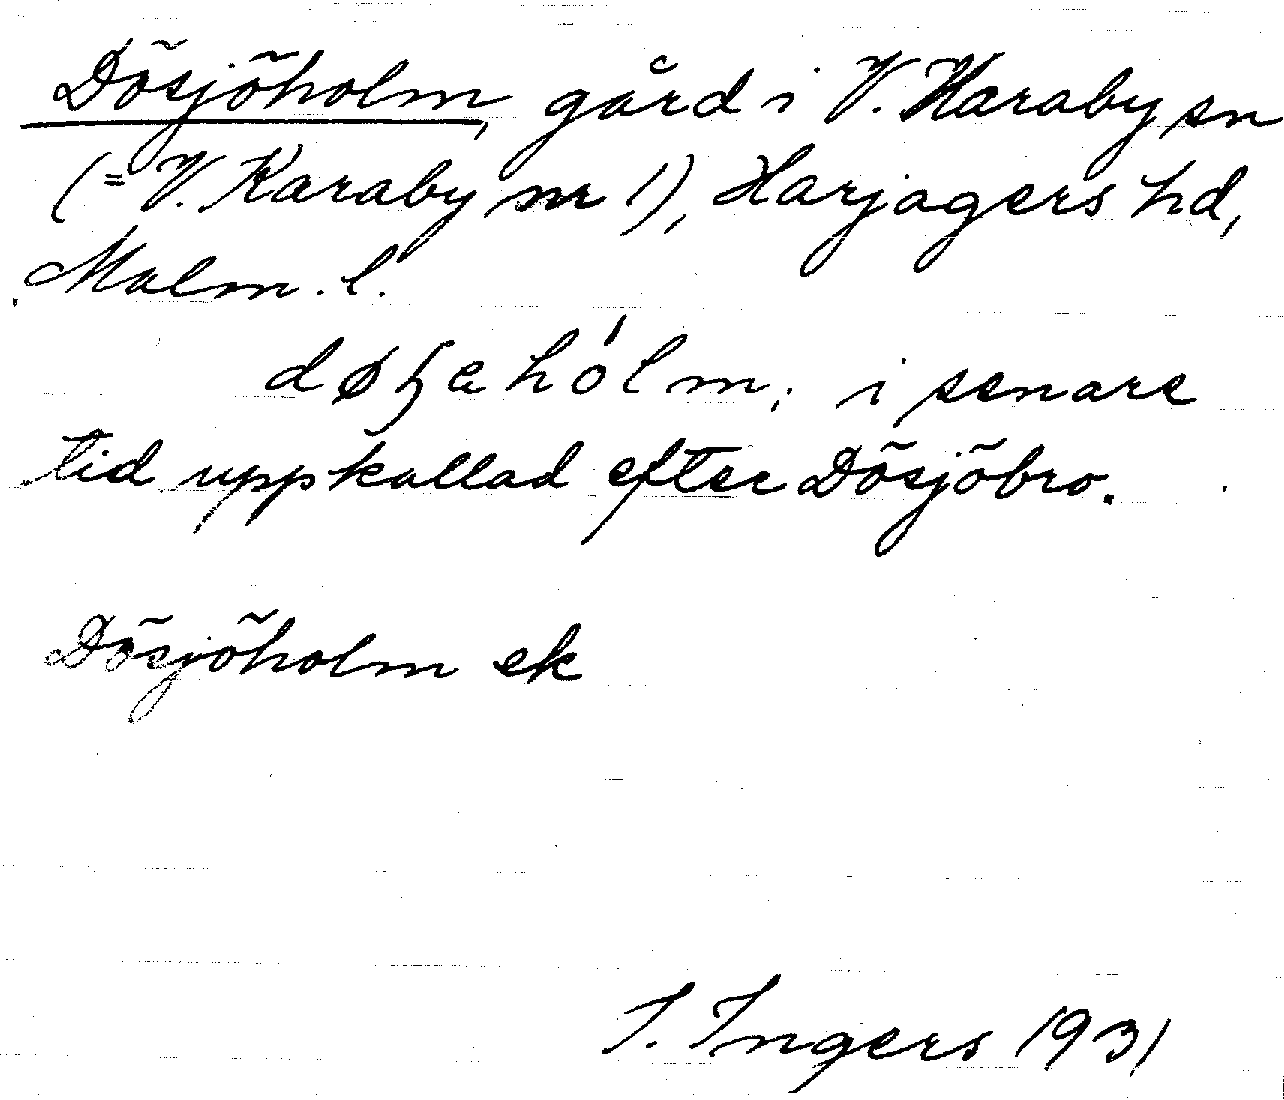 Dösjöholm, gård i V. Karaby sn
(= V. Karaby nr 1), Harjagers hd,
Malm. l.
i senare
tid uppkallad efter Dösjöbro.
Dösjöholm ek
I. Ingers 1931